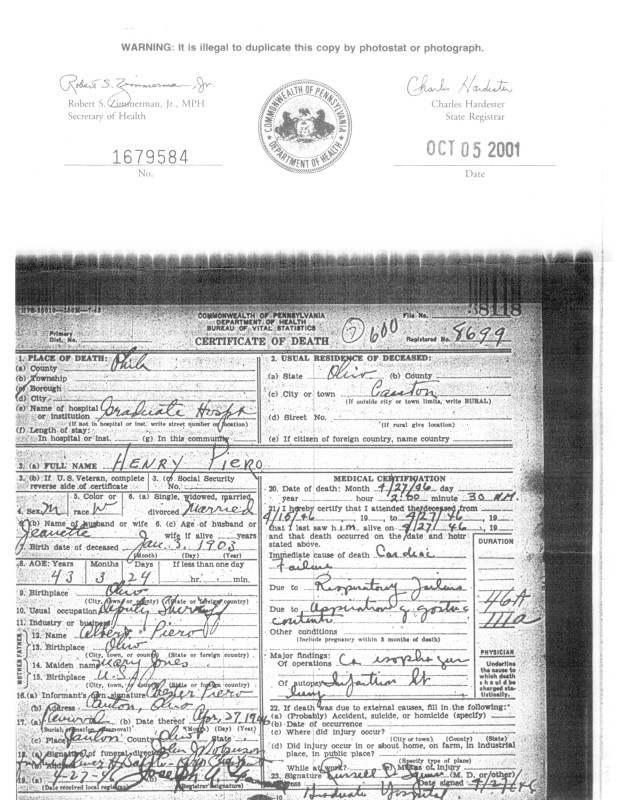 WARNING: It is illegal to duplicate this copy by photostat or photograph.
Robert S. Zimmerman, Jr.
Robert S. Zimmerman, Jr., MPH
Secretary of Health
COMMONWEALTH OF PENNSYLVANIA
DEPARTMENT OF HEALTH
Charles Hardester
Charles Hardester
State Registrar
1679584
No.
OCT 05 2001
Date
38118
COMMONWEALTH OF PENNSYLVANIA
DEPARTMENT OF HEALTH
BUREAU OF VITAL STATISTICS
CERTIFICATE OF DEATH
Primary
Dist. No.
File No.
7 600
Registered No. 8699
1. PLACE OF DEATH: Phila
(a) County
(b) Township
(c) Borough
(d) City
(e) Name of hospital Graduate Hospt
or institution
(If not in hospital or inst. write street number or location)
(f) Length of stay:
In hospital or inst. (g) In this community
2. USUAL RESIDENCE OF DECEASED:
(a) State Ohio (b) County
(c) City or town Canton
(If outside city or town limits, write RURAL)
(d) Street No.
(If rural give location)
(e) If citizen of foreign country, name country
3. (a) FULL NAME HENRY PIERO
3. (b) If U. S. Veteran, complete
reverse side of certificate
3. (c) Social Security
No.
4. Sex M
5. Color or
race W
6. (a) Single, widowed, married,
divorced Married
6. (b) Name of husband or wife
Jeanette
6. (c) Age of husband or
wife if alive years
7. Birth date of deceased Jan. 3, 1903
(Month) (Day) (Year)
8. AGE: Years Months Days If less than one day
43 3 24 hr. min.
9. Birthplace Ohio
(City, town, or county) (State or foreign country)
10. Usual occupation Deputy Sheriff
11. Industry or business
MOTHER FATHER
12. Name Albert Piero
13. Birthplace Ohio
14. Maiden name Mary Jones
15. Birthplace U.S.A.
(City, town, or county) (State or foreign country)
16. (a) Informant's own signature Chester Piero
(b) Address Canton, Ohio
17. (a) Removal (b) Date thereof Apr. 27, 1946
(Burial, cremation, removal) (Month) (Day) (Year)
(c) Place Canton County State Ohio
18. (a) Signature of funeral director
(b) Address
19. (a) 4-27-46
(Date received local registrar) (Registrar's signature)
MEDICAL CERTIFICATION
20. Date of death: Month 4/27/46 day
year hour 2:00 minute 30 A.M.
21. I hereby certify that I attended the deceased from
4/15/46, 19 , to 4/27/46, 19
that I last saw him alive on 4/27/46, 19
and that death occurred on the date and hour
stated above.
DURATION
Immediate cause of death Cardiac
Failure
Due to Respiratory Failure
Due to Aspiration of gastric
contents
46A
111a
Other conditions
(Include pregnancy within 3 months of death)
Major findings:
Of operations Ca esophagus
Of autopsy
lung
PHYSICIAN
Underline
the cause to
which death
should be
charged sta-
tistically.
22. If death was due to external causes, fill in the following:
(a) (Probably) Accident, suicide, or homicide (specify)
(b) Date of occurrence
(c) Where did injury occur?
(City or town) (County) (State)
(d) Did injury occur in or about home, on farm, in industrial
place, in public place?
(Specify type of place)
While at work? (e) Means of injury
23. Signature Russell (M. D. or other)
Address Graduate Hospital Date signed